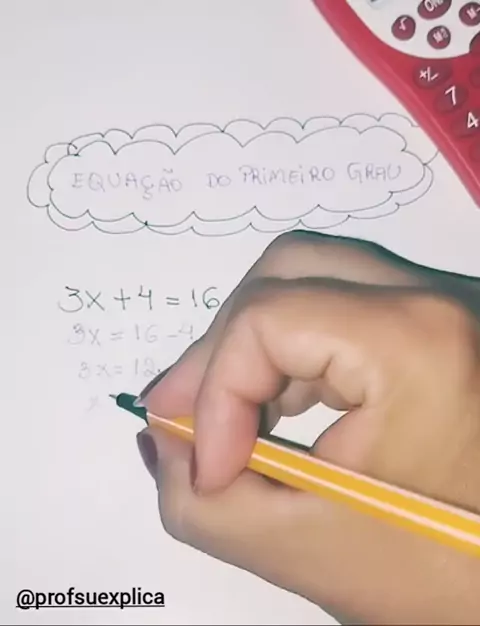 EQUAÇÃO DO PRIMEIRO GRAU
3x + 4 = 16
3x = 16 - 4
3x = 12
x
7
4
+/-
√
@profsuexplica